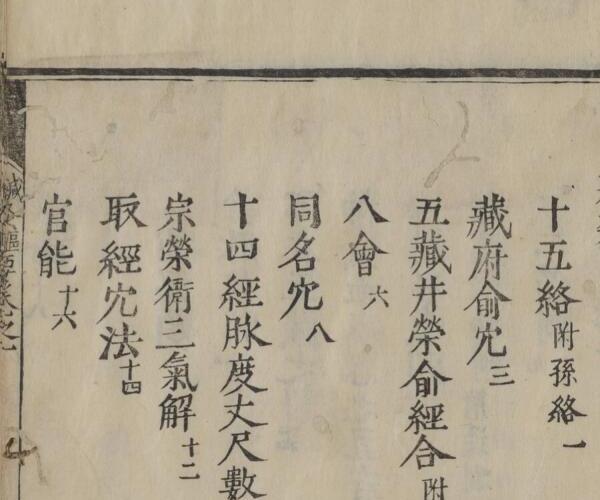 十五絡附孫絡一
藏府俞穴三
五藏井榮俞經合附
八會六
同名穴八
十四經脉度丈尺數
宗榮衛三氣解十二
取經穴法十四
官能十六